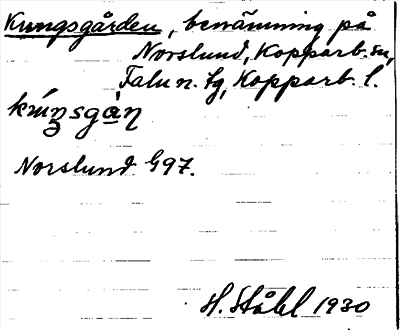 Kungsgården, benämning på
Norslund, Kopparb. sn,
Falu n. tg, Kopparb. l.
Norslund G97.
H. Ståhl 1930